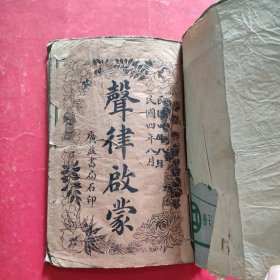 民國四年八月
聲律啟蒙
書局石印